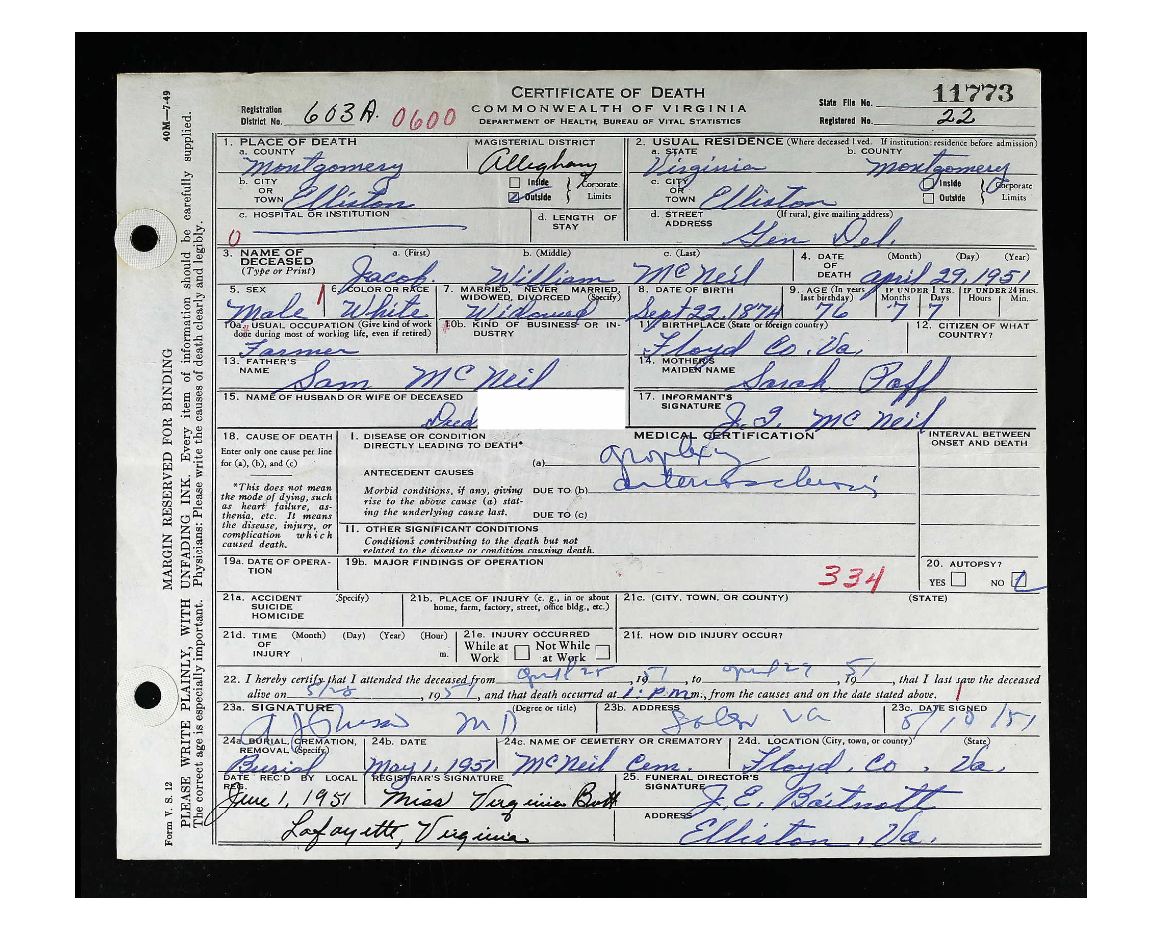 CERTIFICATE OF DEATH
COMMONWEALTH OF VIRGINIA
DEPARTMENT OF HEALTH, BUREAU OF VITAL STATISTICS
Registration District No. 603A. 0600
State File No. 11773
Registered No. 22
40M—7-49
MARGIN RESERVED FOR BINDING
PLEASE WRITE PLAINLY, WITH UNFADING INK. Every item of information should be carefully supplied.
The correct age is especially important. Physicians: Please write the causes of death clearly and legibly.
Form V. S. 12
1. PLACE OF DEATH
a. COUNTY Montgomery
MAGISTERIAL DISTRICT Alleghany
b. CITY OR TOWN Elliston
Inside Outside Corporate Limits
c. HOSPITAL OR INSTITUTION
0
d. LENGTH OF STAY
2. USUAL RESIDENCE (Where deceased lived. If institution: residence before admission)
a. STATE Virginia
b. COUNTY Montgomery
c. CITY OR TOWN Elliston
Inside Outside Corporate Limits
d. STREET ADDRESS (If rural, give mailing address) Gen Del.
3. NAME OF DECEASED (Type or Print)
a. (First) Jacob
b. (Middle) William
c. (Last) McNeil
4. DATE OF DEATH (Month) (Day) (Year) April 29, 1951
5. SEX Male
1
6. COLOR OR RACE White
7. MARRIED, NEVER MARRIED, WIDOWED, DIVORCED (Specify) Widowed
8. DATE OF BIRTH Sept 22, 1874
9. AGE (In years last birthday) 76
IF UNDER 1 YR. Months 7 Days 7
IF UNDER 24 HRS. Hours Min.
10a. USUAL OCCUPATION (Give kind of work done during most of working life, even if retired) Farmer
10b. KIND OF BUSINESS OR INDUSTRY
11. BIRTHPLACE (State or foreign country) Floyd Co. Va.
12. CITIZEN OF WHAT COUNTRY?
13. FATHER'S NAME Sam McNeil
14. MOTHER'S MAIDEN NAME Sarah Poff
15. NAME OF HUSBAND OR WIFE OF DECEASED Dead
17. INFORMANT'S SIGNATURE McNeil
18. CAUSE OF DEATH
Enter only one cause per line for (a), (b), and (c)
*This does not mean the mode of dying, such as heart failure, asthenia, etc. It means the disease, injury, or complication which caused death.
MEDICAL CERTIFICATION
INTERVAL BETWEEN ONSET AND DEATH
I. DISEASE OR CONDITION DIRECTLY LEADING TO DEATH*
(a) apoplexy
ANTECEDENT CAUSES
Morbid conditions, if any, giving rise to the above cause (a) stating the underlying cause last.
DUE TO (b) arteriosclerosis
DUE TO (c)
II. OTHER SIGNIFICANT CONDITIONS
Conditions contributing to the death but not related to the disease or condition causing death.
19a. DATE OF OPERATION
19b. MAJOR FINDINGS OF OPERATION
334
20. AUTOPSY?
YES NO
21a. ACCIDENT SUICIDE HOMICIDE (Specify)
21b. PLACE OF INJURY (e. g., in or about home, farm, factory, street, office bldg., etc.)
21c. (CITY, TOWN, OR COUNTY) (STATE)
21d. TIME OF INJURY (Month) (Day) (Year) (Hour) m.
21e. INJURY OCCURRED While at Work Not While at Work
21f. HOW DID INJURY OCCUR?
22. I hereby certify that I attended the deceased from April 25, 1951, to April 29, 1951, that I last saw the deceased
alive on 5/28, 1951, and that death occurred at 1: P.M. m., from the causes and on the date stated above. 1
23a. SIGNATURE (Degree or title) MD
23b. ADDRESS Va
23c. DATE SIGNED 5/10/51
24a. BURIAL, CREMATION, REMOVAL (Specify) Burial
24b. DATE May 1, 1951
24c. NAME OF CEMETERY OR CREMATORY McNeil Cem.
24d. LOCATION (City, town, or county) (State) Floyd, Co. Va.
DATE REC'D BY LOCAL REG. June 1, 1951
REGISTRAR'S SIGNATURE Miss Virginia Butt
Lafayette, Virginia
25. FUNERAL DIRECTOR'S SIGNATURE J. E. Boitnott
ADDRESS Elliston, Va.